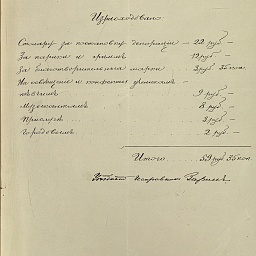 Израсходовано:
Столяру за постановку декорацiи – 22 руб. –
За парики и гриммъ 12 руб. –
За благотворительныя марки – 3 руб. 35 коп.
На освѣщенiе и конфекты ученикамъ
9 руб. –
Музыкантамъ 8 руб. –
Прислугѣ ... 3 руб. –
Городовымъ 2 руб. –
Итого ..... 59 руб 35 коп.